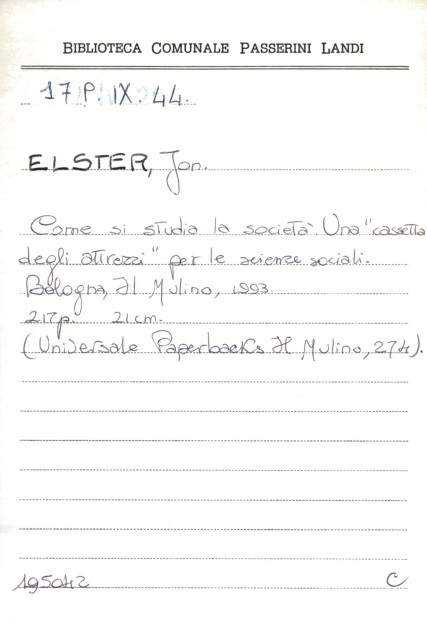 BIBLIOTECA COMUNALE PASSERINI LANDI
17.P.IX.44.
ELSTER, Jon.
Come si studia la società. Una "cassetta
degli attrezzi" per le scienze sociali.
Bologna, Il Mulino, 1993
217p. 21cm.
(Universale Paperbacks Il Mulino, 274).
195042 C